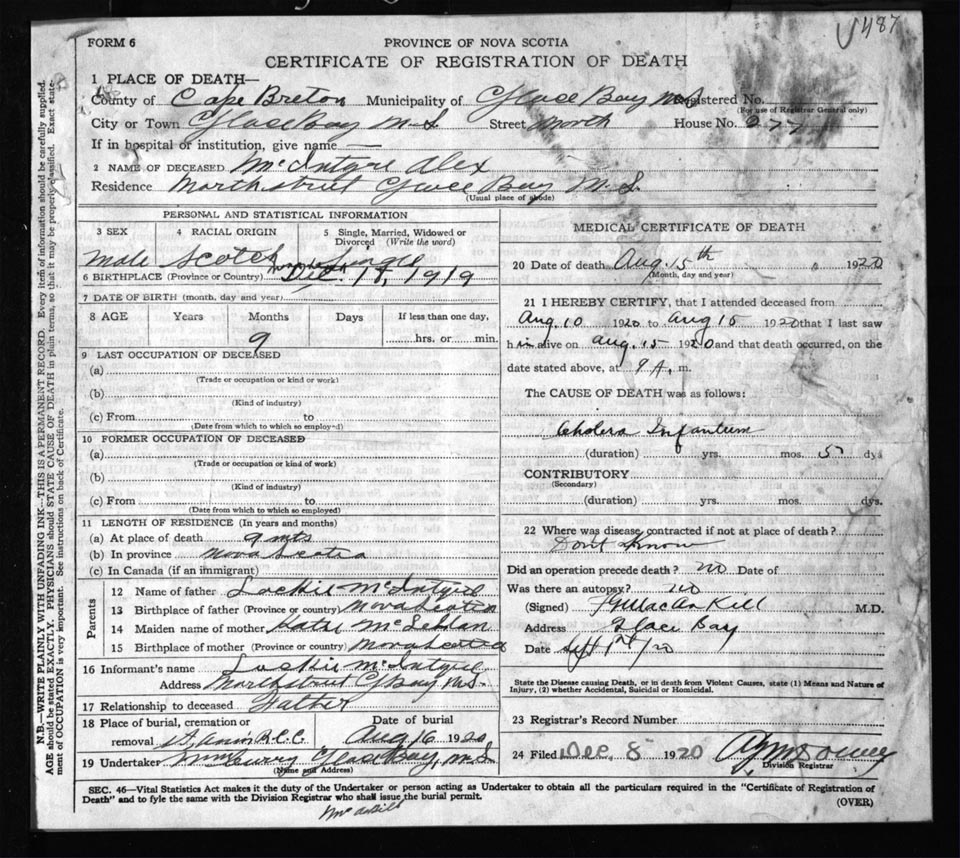 487
FORM 6
PROVINCE OF NOVA SCOTIA
CERTIFICATE OF REGISTRATION OF DEATH
1 PLACE OF DEATH—
County of Cape Breton Municipality of Glace Bay N.S. Registered No.
(For use of Registrar General only)
City or Town Glace Bay N.S. Street North House No. 277
If in hospital or institution, give name —
2 NAME OF DECEASED McIntyre Alex
Residence North street Glace Bay N.S.
(Usual place of abode)
PERSONAL AND STATISTICAL INFORMATION
3 SEX 4 RACIAL ORIGIN 5 Single, Married, Widowed or Divorced (Write the word)
Male Scotch Single
6 BIRTHPLACE (Province or Country) Dec. 18, 1919
7 DATE OF BIRTH (month, day and year)
8 AGE Years Months Days If less than one day,
9 hrs. or min.
9 LAST OCCUPATION OF DECEASED
(a)
(Trade or occupation or kind or work)
(b)
(Kind of industry)
(c) From to
(Date from which to which so employed)
10 FORMER OCCUPATION OF DECEASED
(a)
(Trade or occupation or kind of work)
(b)
(Kind of industry)
(c) From to
(Date from which to which so employed)
11 LENGTH OF RESIDENCE (In years and months)
(a) At place of death 9 mts
(b) In province Nova Scotia
(c) In Canada (if an immigrant)
Parents
12 Name of father Lockie McIntyre
13 Birthplace of father (Province or country) Nova Scotia
14 Maiden name of mother Katie
15 Birthplace of mother (Province or country) Nova Scotia
16 Informant's name Lockie McIntyre
Address North street G Bay N.S.
17 Relationship to deceased Father
18 Place of burial, cremation or removal St Anns R.C.C. Date of burial Aug 16 1920
19 Undertaker Curry Glace Bay, N.S.
(Name and Address)
MEDICAL CERTIFICATE OF DEATH
20 Date of death Aug. 15th 1920
(Month, day and year)
21 I HEREBY CERTIFY, that I attended deceased from
Aug. 10 1920 to Aug 15 1920 that I last saw
him alive on Aug. 15 1920 and that death occurred, on the
date stated above, at 9 A. m.
The CAUSE OF DEATH was as follows:
Cholera Infantum
(duration) yrs. mos. 5 dys
CONTRIBUTORY
(Secondary)
(duration) yrs. mos. dys.
22 Where was disease contracted if not at place of death?
Dont know
Did an operation precede death? no Date of
Was there an autopsy? no
(Signed) M.D.
Address Glace Bay
Date Sept 1st/20
State the Disease causing Death, or in death from Violent Causes, state (1) Means and Nature of Injury, (2) whether Accidental, Suicidal or Homicidal.
23 Registrar's Record Number
24 Filed Dec 8 1920
Division Registrar
SEC. 46—Vital Statistics Act makes it the duty of the Undertaker or person acting as Undertaker to obtain all the particulars required in the "Certificate of Registration of
Death" and to fyle the same with the Division Registrar who shall issue the burial permit.
(OVER)
N.B.—WRITE PLAINLY WITH UNFADING INK—THIS IS A PERMANENT RECORD. Every item of information should be carefully supplied.
AGE should be stated EXACTLY. PHYSICIANS should STATE CAUSE OF DEATH in plain terms, so that it may be properly classified. Exact statement of OCCUPATION is very important. See instructions on back of Certificate.